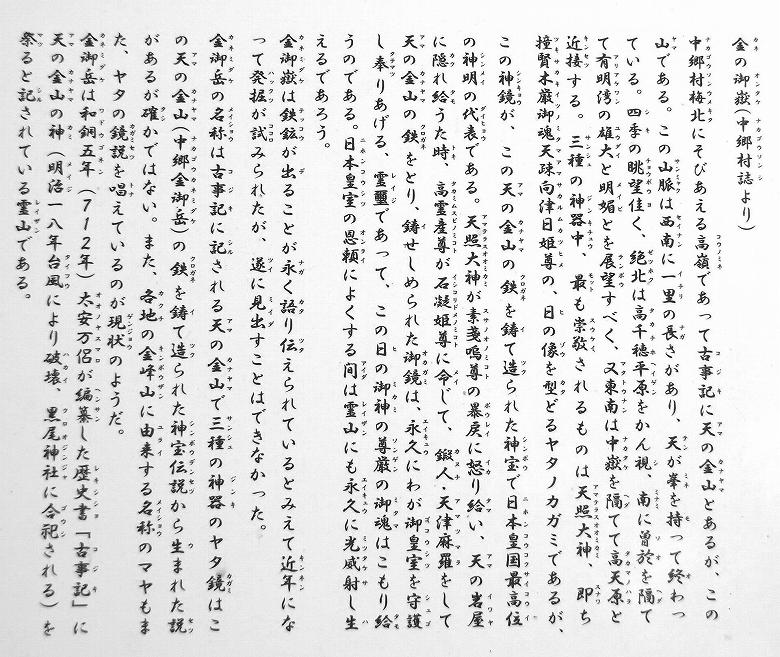 金の御嶽(中郷村誌より)
中郷村梅北にそびあえる高嶺であって古事記に天の金山とあるが、この
山である。この山脈は西南に一里の長さがあり、天が峯を持って終わっ
ている。四季の眺望佳く、絶北は高千穂平原をかん視、南に曽於を隔て
て有明湾の雄大と明媚とを展望すべく、又東南は中嶽を隔てて高天原と
近接する。三種の神器中、最も崇敬されるものは天照大神、即ち
撞賢木厳御魂天疎向津日姫尊の、日の像を型どるヤタノカガミであるが、
この神鏡が、この天の金山の鉄を鋳て造られた神宝で日本皇国最高位
の神明の代表である。天照大神が素戔嗚尊の暴戻に怒り給い、天の岩屋
に隠れ給うた時、高霊産尊が石凝姫尊に命じて、鍛人・天津麻羅をして
天の金山の鉄をとり、鋳せしめられた御鏡は、永久にわが御皇室を守護
し奉りあげる、霊璽であって、この日の御神の尊厳の御魂はこもり給
うのである。日本皇室の恩頼によくする間は霊山にも永久に光威射し生
えるであろう。
金御嶽は鉄鉉が出ることが永く語り伝えられているとみえて近年にな
って発掘が試みられたが、遂に見出すことはできなかった。
金御岳の名称は古事記に記される天の金山で三種の神器のヤタ鏡はこ
の天の金山(中郷金御岳)の鉄を鋳て造られた神宝伝説から生まれた説
があるが確かではない。また、各地の金峰山に由来する名称のマヤもま
た、ヤタの鏡説を唱えているのが現状のようだ。
金御岳は和銅五年(712年)太安万侶が編纂した歴史書「古事記」に
天の金山の神(明治一八年台風により破壊、黒尾神社に合祀される)を
祭ると記されている霊山である。